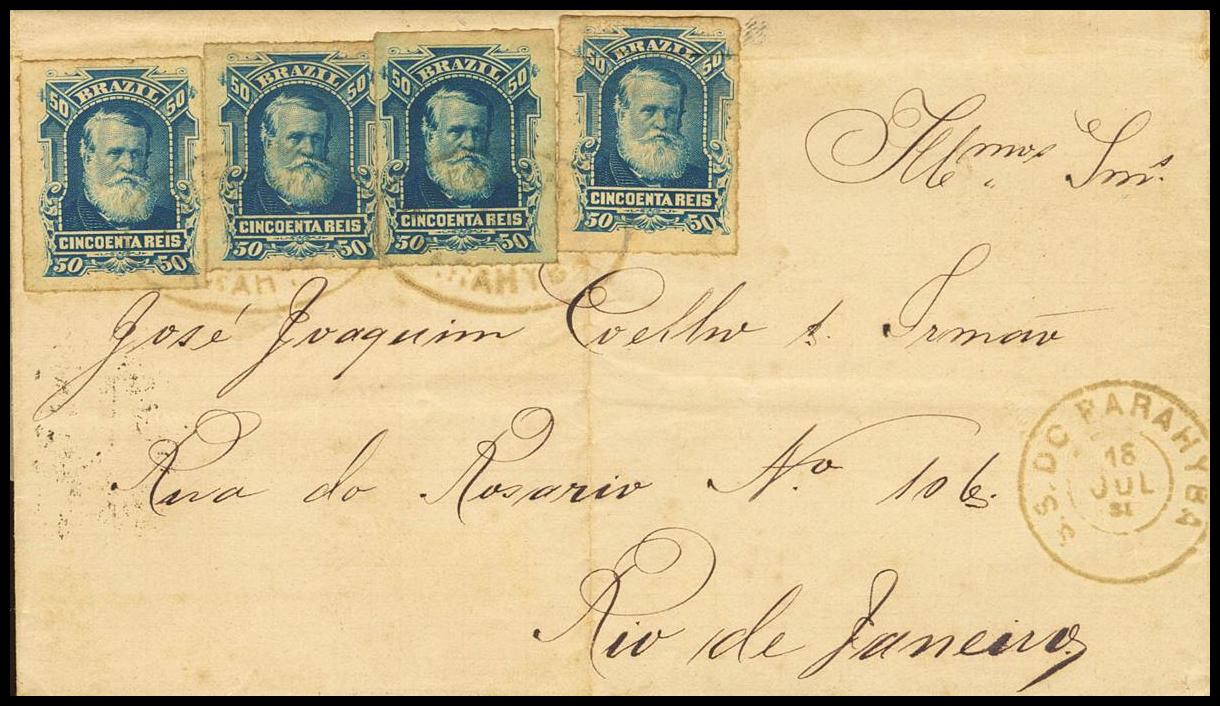 50 BRAZIL 50
CINCOENTA REIS
50 50
50 BRAZIL 50
CINCOENTA REIS
50 50
50 BRAZIL 50
CINCOENTA REIS
50 50
50 BRAZIL 50
CINCOENTA REIS
50 50
Illmos Snrs.
José Joaquim Coelho & Irmão
Rua do Rosario No. 106.
Rio de Janeiro
S.S. DO PARAHYBA
18
JUL
81